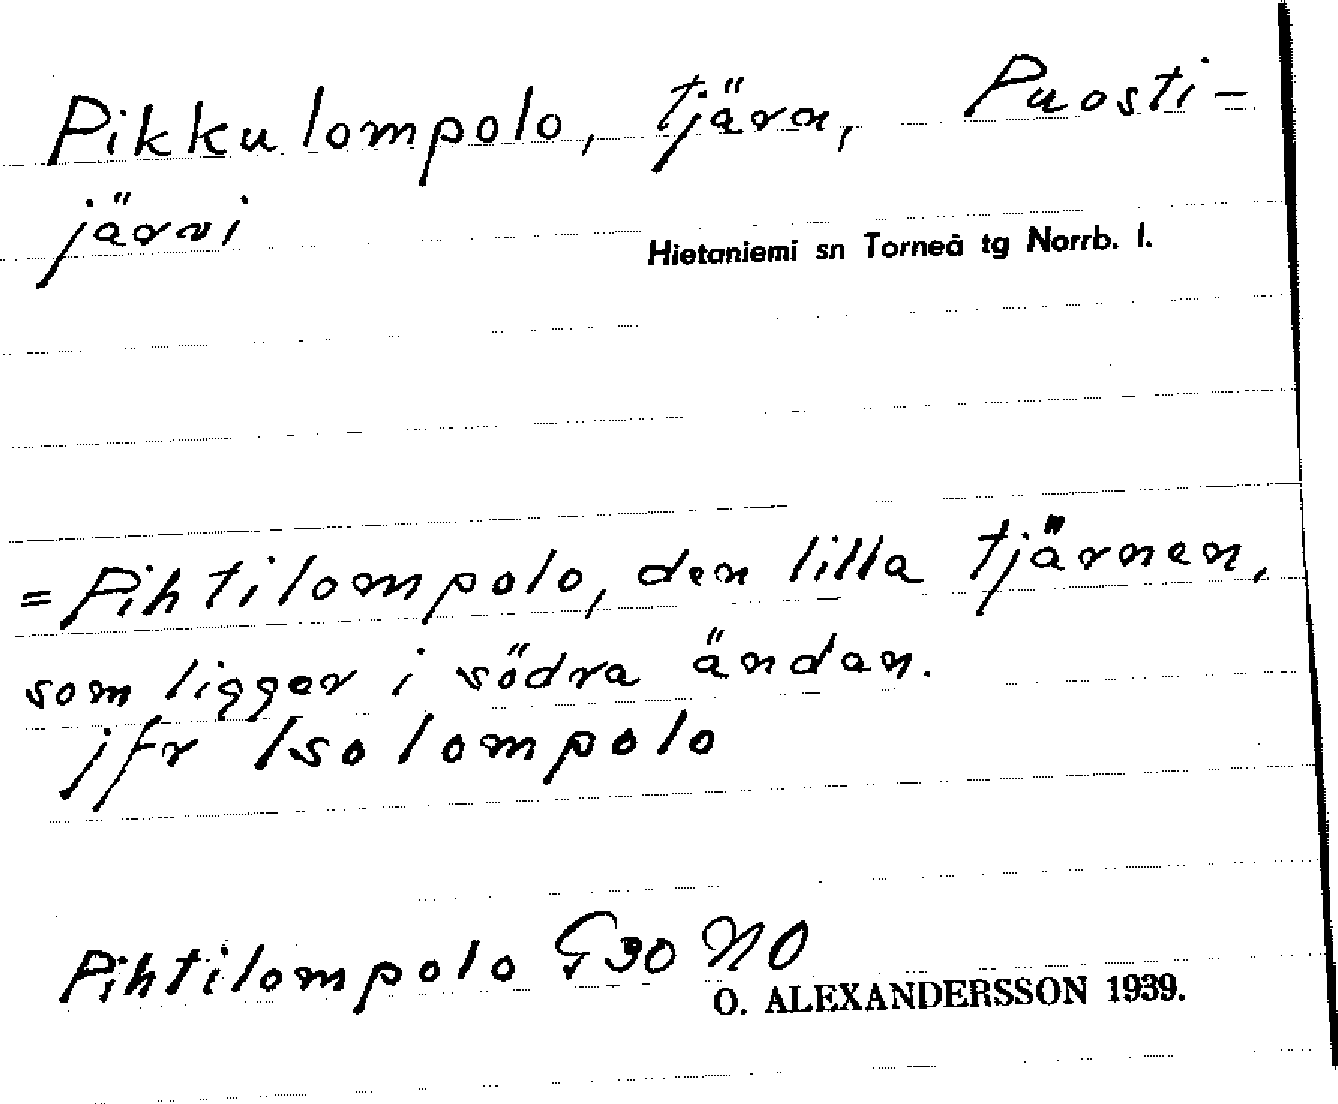 Pikkulompolo, tjärn, Puosti-
järvi
Hietaniemi sn Torneå tg Norrb. l.
= Pihtilompolo, den lilla tjärnen,
som ligger i södra ändan.
jfr Isolompolo
Pihtilompolo G30 NO
O. ALEXANDERSSON 1939.